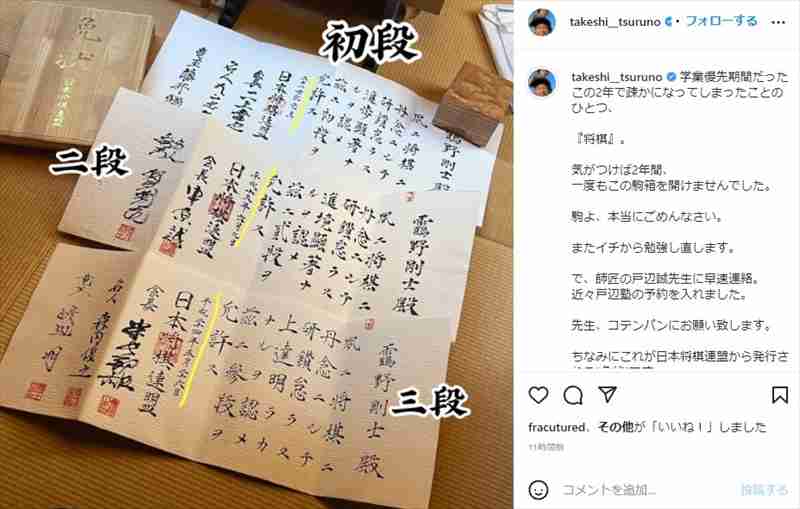 免状
日本将棋連盟
初段
靏野剛士殿
夙ニ将棋ニ
丹念ニシテ
研鑽怠ラス
進歩顕著ナ
ルヲ認メ
茲ニ初段ヲ
允許ス
日本将棋連盟
会長
二段
靏野剛士殿
夙ニ将棋ニ
丹念ニシテ
研鑽怠ラス
進境顕著ナ
ルヲ認メ
茲ニ弐段ヲ
允許ス
日本将棋連盟
会長 中原誠
三段
靏野剛士殿
夙ニ将棋ニ
丹念ニシテ
研鑽怠ラス
上達明ラカ
ナルヲ認メ
茲ニ参段ヲ
允許ス
日本将棋連盟
会長 米長邦雄
名人 森内俊之
竜王 渡辺明
takeshi__tsuruno • フォローする
takeshi__tsuruno 学業優先期間だった
この2年で疎かになってしまったことの
ひとつ、
『将棋』。
気がつけば2年間、
一度もこの駒箱を開けませんでした。
駒よ、本当にごめんなさい。
またイチから勉強し直します。
で、師匠の戸辺誠先生に早速連絡。
近々戸辺塾の予約を入れました。
先生、コテンパンにお願い致します。
ちなみにこれが日本将棋連盟から発行さ
fracutured、その他が「いいね！」しました
11時間前
コメントを追加...
投稿する